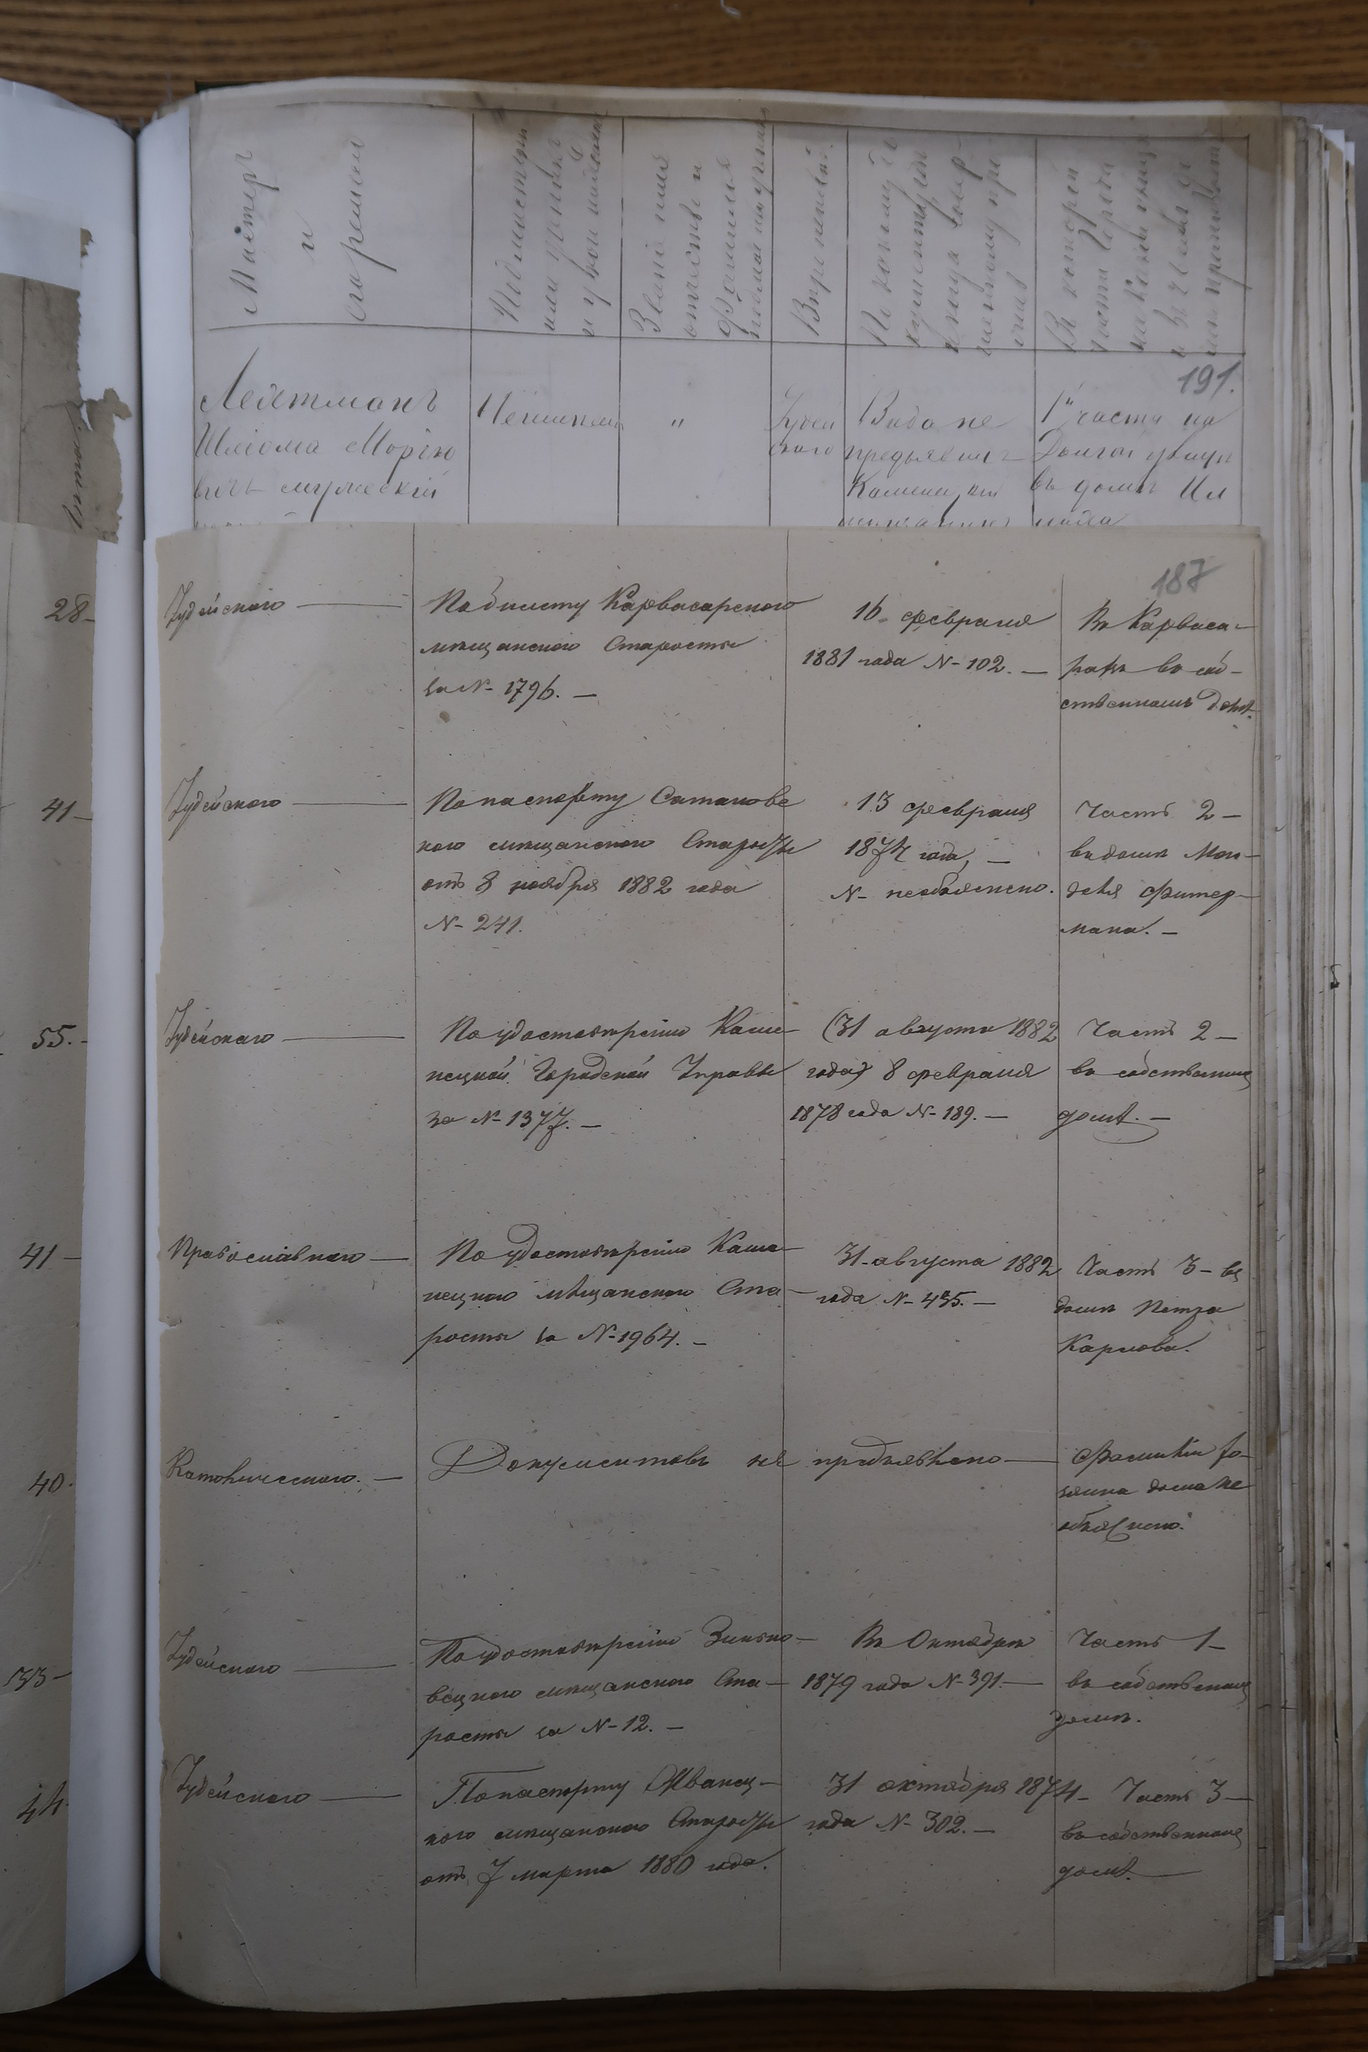 Мастеръ
и
его ремесло
Подмастерья
или ученики
и у кого
Званіе имя
отчество и
фамилія
Вѣроисповѣд.
По какому до
кументу
Въ которой
части города
на какой улицѣ
и въ чьемъ до
мѣ проживаетъ
191.
Лейтманъ
Шліома Морт
вичъ
"
Іудей
скаго
Вида не
предъявилъ
Каменец кій
мѣщанинъ
1й части на
Долгой улицѣ
въ домѣ
187
28-
Іудейскаго
По билету Карвасарскаго
мѣщанскаго Старосты
за № 1796. —
16 февраля
1881 года № 102. —
Въ Карваса-
рахъ въ соб-
ственномъ домѣ.
41-
Іудейскаго
По паспорту Сатановс
каго мѣщанскаго Старосты
отъ 8 ноября 1882 года
№ 241.
13 февраля
1874 года, —
№ необъяснено.
Часть 2 —
въ домѣ Мон-
деля Фитер-
мана. —
55.-
Іудейскаго
По удостовѣренію Каме-
нецкой Городской Управы
за № 1377. —
(31 августа 1882
года) 8 февраля
1878 года № 189. —
Часть 2 —
въ собственномъ
домѣ. —
41 —
Православнаго —
По удостовѣренію Каме-
нецкаго мѣщанскаго Ста-
росты за № 1964. —
31 августа 1882
года № 435. —
Часть 3 — въ
домѣ Петра
Карлова.
40.
Католическаго. —
Документовъ не предъявлено —
Фамиліи хо-
зяина дома не
объяснено.
33-
Іудейскаго
По удостовѣренію Зинько-
вецкаго мѣщанскаго Ста-
росты за № 12. —
Въ Октябрѣ
1879 года № 391. —
Часть 1 —
въ собственномъ
домѣ.
44.
Іудейскаго
По паспорту Жванец-
каго мѣщанскаго Старосты
отъ 7 марта 1880 года.
31 октября 1874
года № 302. —
Часть 3 —
въ собственномъ
домѣ. —